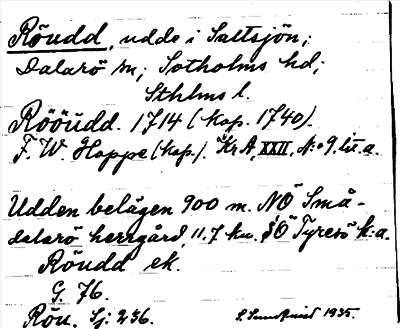 Röudd, udde i Saltsjön;
Dalarö sn; Sotholms hd;
Sthlms l.
Rööudd. 1714 (kop. 1740).
F. W. Hoppe (kop.). KrA, XXII, N:o 9. lit. a.
Udden belägen 900 m. NÖ Små-
dalarö herrgård, 11.7 km. SÖ Tyresö k:a.
Röudd ek.
G. 76.
Rön. Sj: 256. S. Sundkvist 1935.